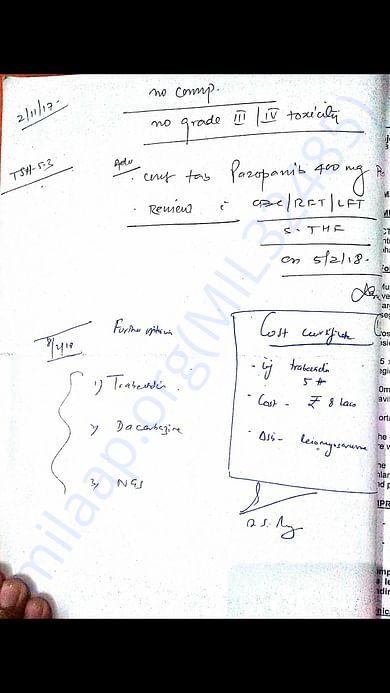 2/11/17.
no comp.
no grade III / IV toxicity
TSH-5.3
Adv
cont tab Pazopanib 400 mg
Review c CBC/RFT/LFT
on 5/2/18.
Further options
1) Trabectedin
2) Dacarbazine
3) NGS
Cost certificate
- Inj trabectedin
5 #
- Cost - ₹ 8 lacs
- Dis- leiomyosarcoma
milaap.org(MIL32485)